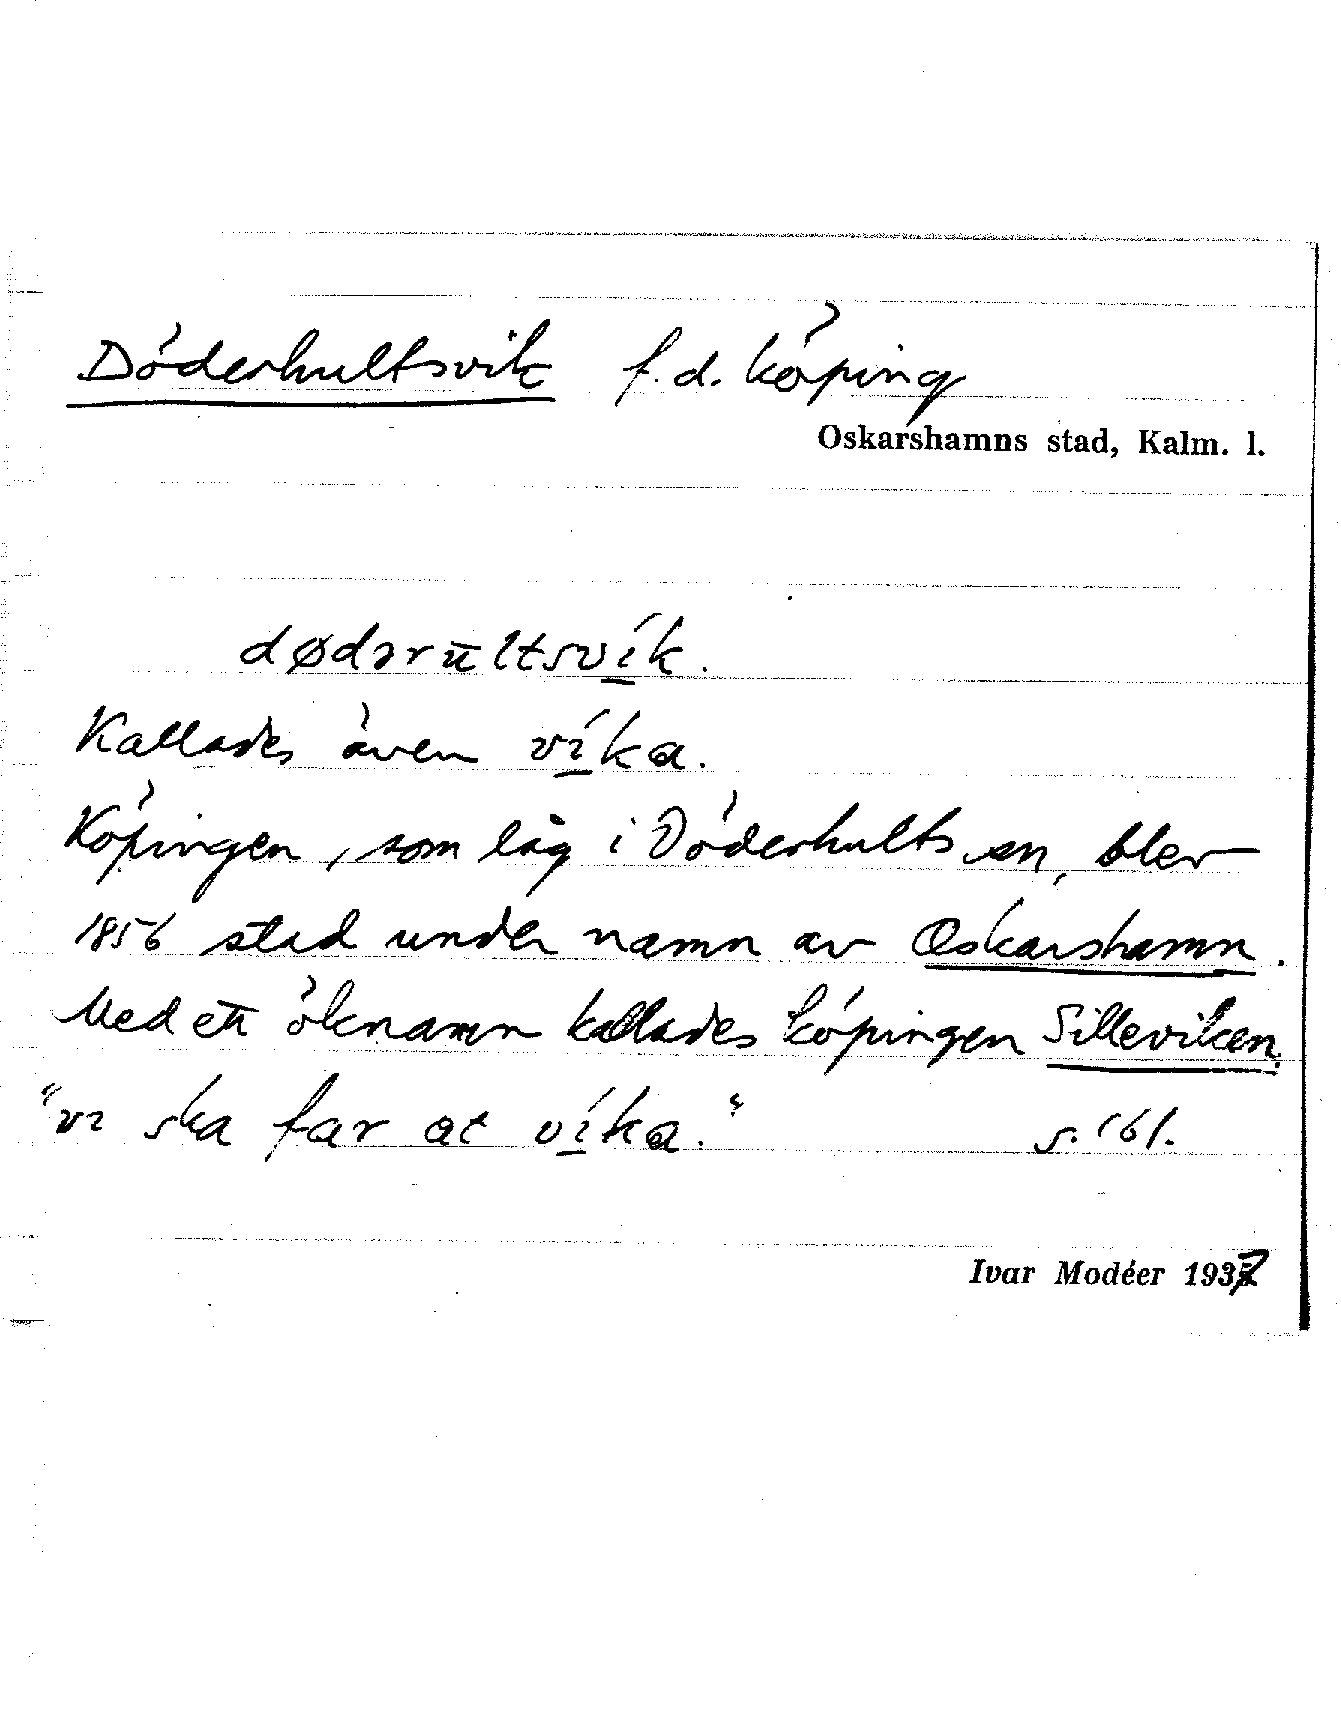 Döderhultsvik f.d. köping
Oskarshamns stad, Kalm. l.
dødərūltsvík.
Kallades även víka.
Köpingen, som låg i Döderhults sn, blev
1856 stad under namn av Oskarshamn.
Med ett öknamn kallades köpingen Silleviken.
"vi ska far at víka." s. 161.
Ivar Modéer 1937